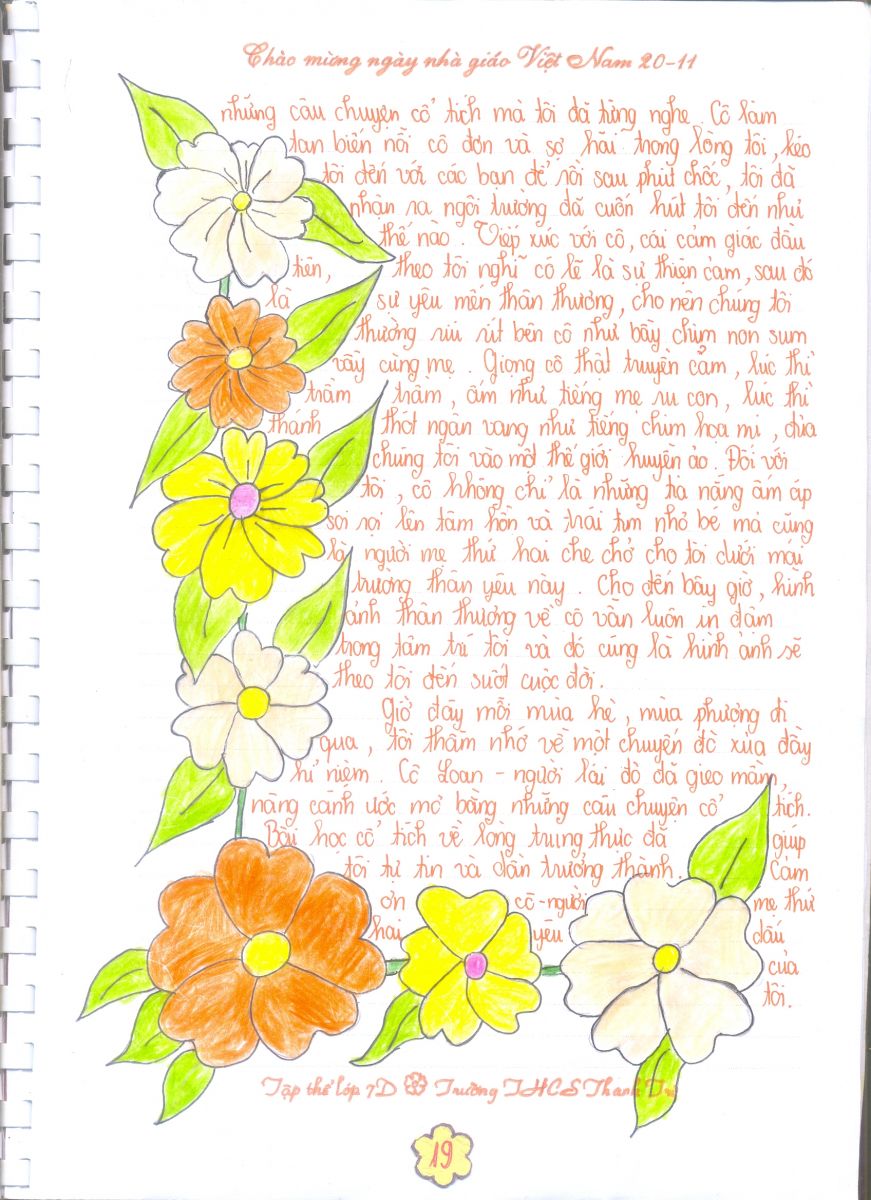 Chào mừng ngày nhà giáo Việt Nam 20-11
những câu chuyện cổ tích mà tôi đã từng nghe. Cô làm
tan biến nỗi cô đơn và sợ hãi trong lòng tôi, kéo
tôi đến với các bạn để rồi sau phút chốc, tôi đã
nhận ra ngôi trường đã cuốn hút tôi đến như
thế nào. Tiếp xúc với cô, cái cảm giác đầu
tiên, theo tôi nghĩ có lẽ là sự thiện cảm, sau đó
là sự yêu mến thân thương, cho nên chúng tôi
thường ríu rít bên cô như bầy chim non sum
vầy cùng mẹ. Giọng cô thật truyền cảm, lúc thì
trầm trầm, ấm như tiếng mẹ ru con, lúc thì
thánh thót ngân vang như tiếng chim họa mi, đưa
chúng tôi vào một thế giới huyền ảo. Đối với
tôi, cô không chỉ là những tia nắng ấm áp
soi rọi lên tâm hồn và trái tim nhỏ bé mà cũng
là người mẹ thứ hai che chở cho tôi dưới mái
trường thân yêu này. Cho đến bây giờ, hình
ảnh thân thương về cô vẫn luôn in đậm
trong tâm trí tôi và đó cũng là hình ảnh sẽ
theo tôi đến suốt cuộc đời.
Giờ đây mỗi mùa hè, mùa phượng đi
qua, tôi thầm nhớ về một chuyến đò xưa đầy
kỉ niệm. Cô Loan - người lái đò đã gieo mầm,
nâng cánh ước mơ bằng những câu chuyện cổ tích.
Bài học cổ tích về lòng trung thực đã giúp
tôi tự tin và dần trưởng thành. Cảm
ơn cô-người mẹ thứ
hai yêu dấu
của
tôi.
Tập thể lớp 7D Trường THCS Thanh Trì
19